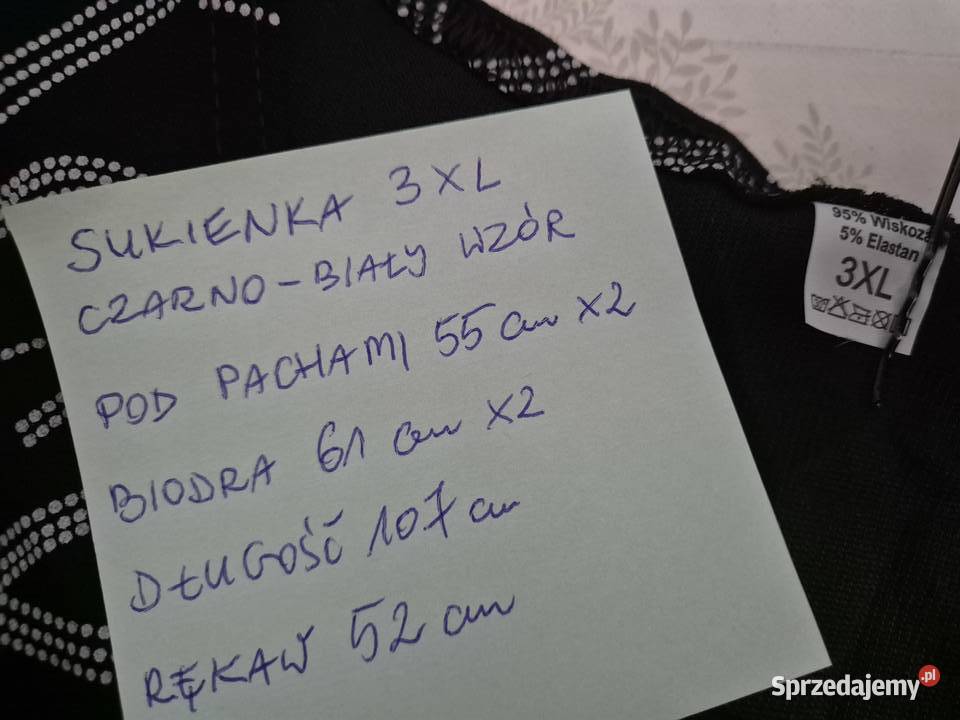 SUKIENKA 3XL
CZARNO-BIAŁY WZÓR
POD PACHAMI 55 cm x2
BIODRA 61 cm x2
DŁUGOŚĆ 107 cm
RĘKAW 52 cm
95% Wiskoza
5% Elastan
3XL
Sprzedajemy.pl